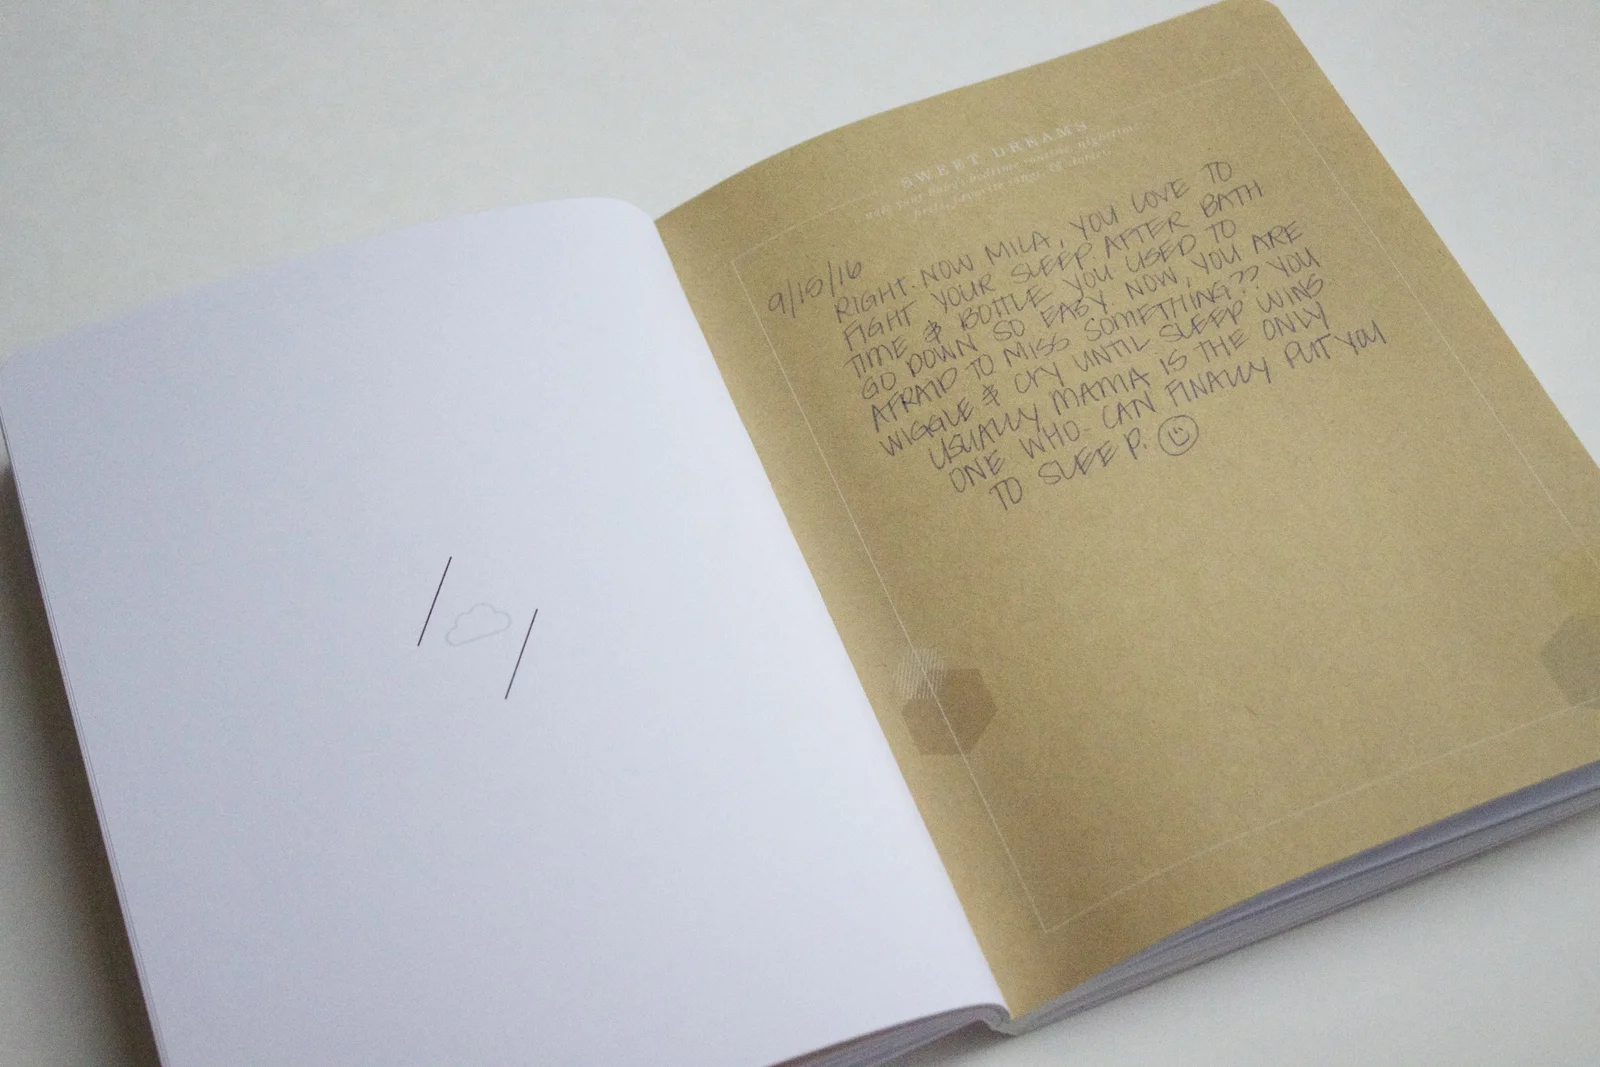 SWEET DREAMS
9/15/16
RIGHT NOW MILA, YOU LOVE TO
FIGHT YOUR SLEEP AFTER BATH
TIME & BOTTLE YOU USED TO
GO DOWN SO EASY NOW, YOU ARE
AFRAID TO MISS SOMETHING?? YOU
WIGGLE & CRY UNTIL SLEEP WINS.
USUALLY MAMA IS THE ONLY
ONE WHO CAN FINALLY PUT YOU
TO SLEEP.